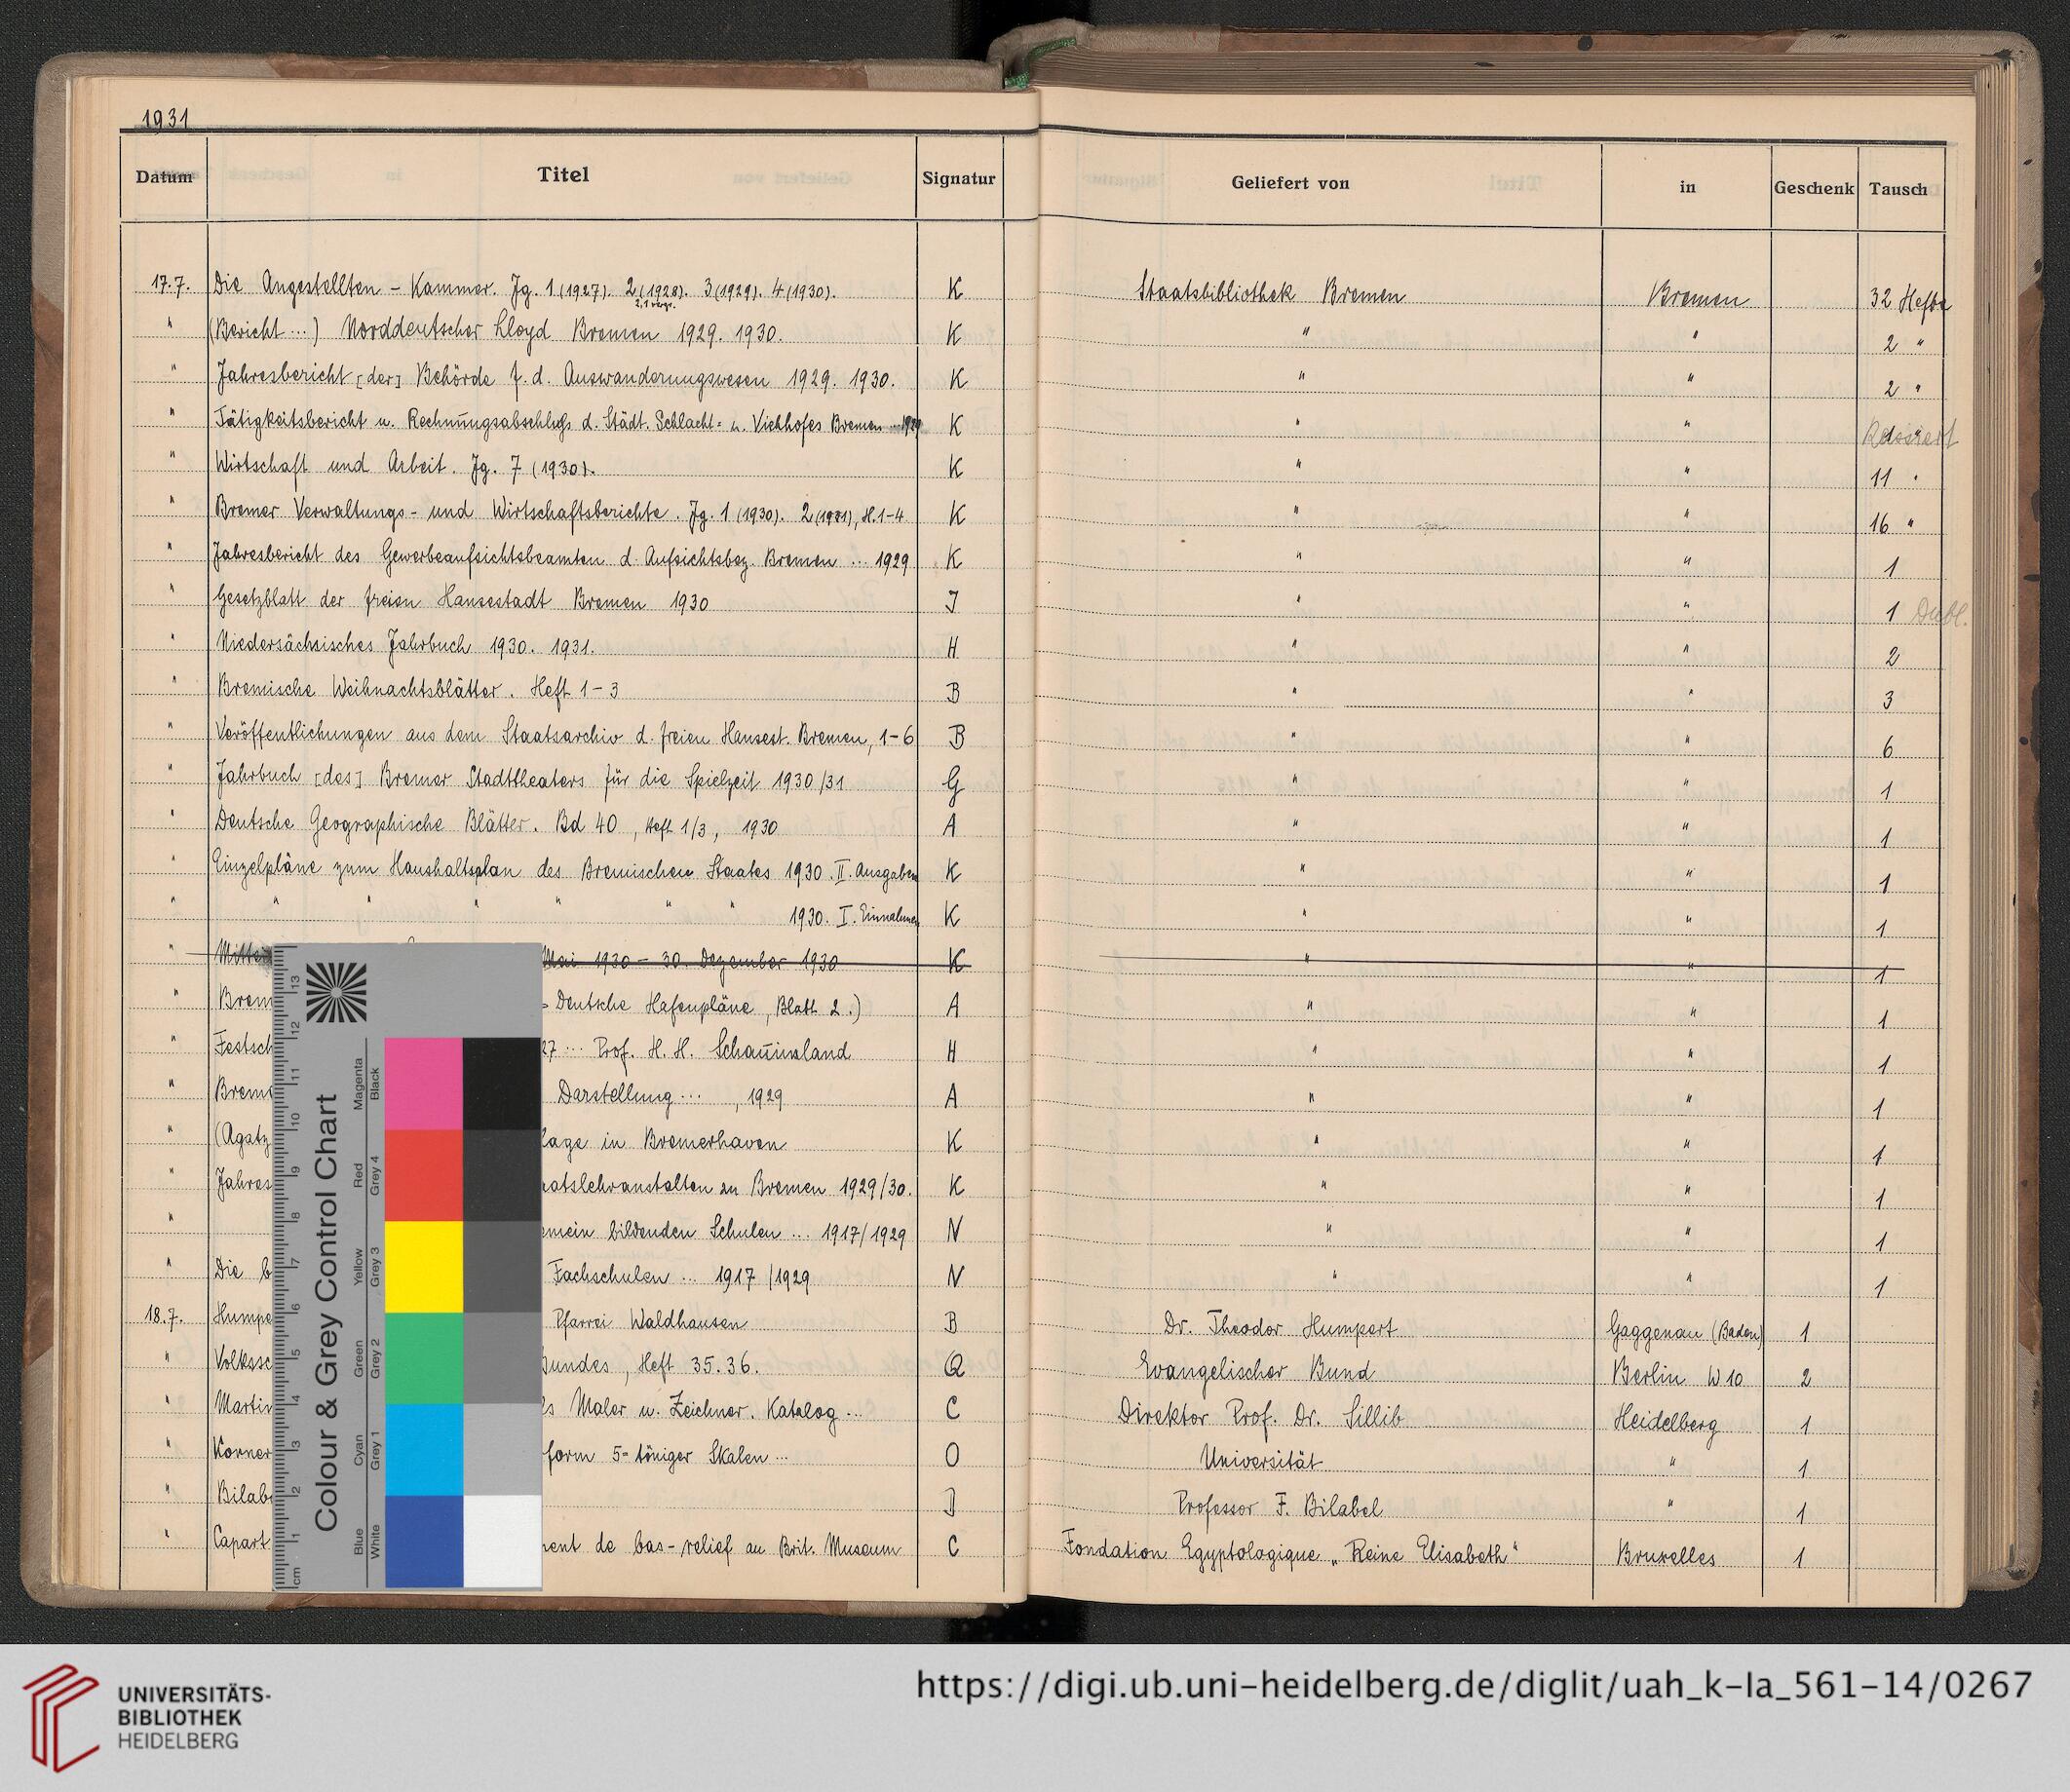 1931
Datum Titel Signatur Geliefert von in Geschenk Tausch
17.7. Die Angestellten - Kammer. Jg. 1 (1927). 2 (1928). 3 (1929). 4 (1930). K Staatsbibliothek Bremen Bremen 32 Hefte
" (Bericht ...) Norddeutscher Lloyd Bremen 1929. 1930. K " " 2 "
" Jahresbericht [der] Behörde f. d. Auswanderungswesen 1929. 1930. K " " 2 "
" Tätigkeitsbericht u. Rechnungsabschluss d. Städt. Schlacht= u. Viehhofes Bremen ... 1929 K " "
" Wirtschaft und Arbeit. Jg. 7 (1930). K " " 11 "
" Bremer Verwaltungs- und Wirtschaftsberichte. Jg. 1 (1930). 2 (1931), H. 1-4 K " " 16 "
" Jahresbericht des Gewerbeaufsichtsbeamten d. Aufsichtsbez. Bremen ... 1929 K " " 1
" Gesetzblatt der freien Hansestadt Bremen 1930 J " " 1 Dubl.
" Niedersächsisches Jahrbuch 1930. 1931. H " " 2
" Bremische Weihnachtsblätter. Heft 1-3 B " " 3
" Veröffentlichungen aus dem Staatsarchiv d. freien Hansest. Bremen, 1-6 B " " 6
" Jahrbuch [des] Bremer Stadttheaters für die Spielzeit 1930/31 G " " 1
" Deutsche Geographische Blätter. Bd 40, Heft 1/3, 1930 A " " 1
" Einzelpläne zum Haushaltsplan des Bremischen Staates 1930. II. Ausgaben K " " 1
" " " " " " " 1930. I. Einnahmen K " " 1
" Mitte Mai 1930 - 30. Dezember 1930 K " " 1
" Brem = Deutsche Hafenpläne, Blatt 2.) A " " 1
" Festsch 27 ... Prof. H. H. Schauinsland H " " 1
" Brem Darstellung ..., 1929 A " " 1
" (Agatz lage in Bremerhaven K " " 1
" Jahres ratslehranstalten zu Bremen 1929/30. K " " 1
" emein bildenden Schulen ... 1917/1929 N " " 1
" Die b Fachschulen ... 1917/1929 N " " 1
18.7. Humpe Pfarrei Waldhausen B Dr. Theodor Humpert Gaggenau (Baden) 1
" Volkssc Bundes, Heft 35.36. Q Evangelischer Bund Berlin W 10 2
" Martin ls Maler u. Zeichner. Katalog ... C Direktor Prof. Dr. Sillib Heidelberg 1
" Korner form 5=töniger Skalen ... O Universität " 1
" Bilab D Professor F. Bilabel " 1
" Capart ment de bas-relief au Brit. Museum C Fondation Egyptologique „Reine Elisabeth“ Bruxelles 1
Colour & Grey Control Chart
Magenta Black
Red Grey 4
Yellow Grey 3
Green Grey 2
Cyan Grey 1
Blue White
cm 1 2 3 4 5 6 7 8 9 10 11 12 13
UNIVERSITÄTS-
BIBLIOTHEK
HEIDELBERG
https://digi.ub.uni-heidelberg.de/diglit/uah_k-Ia_561-14/0267